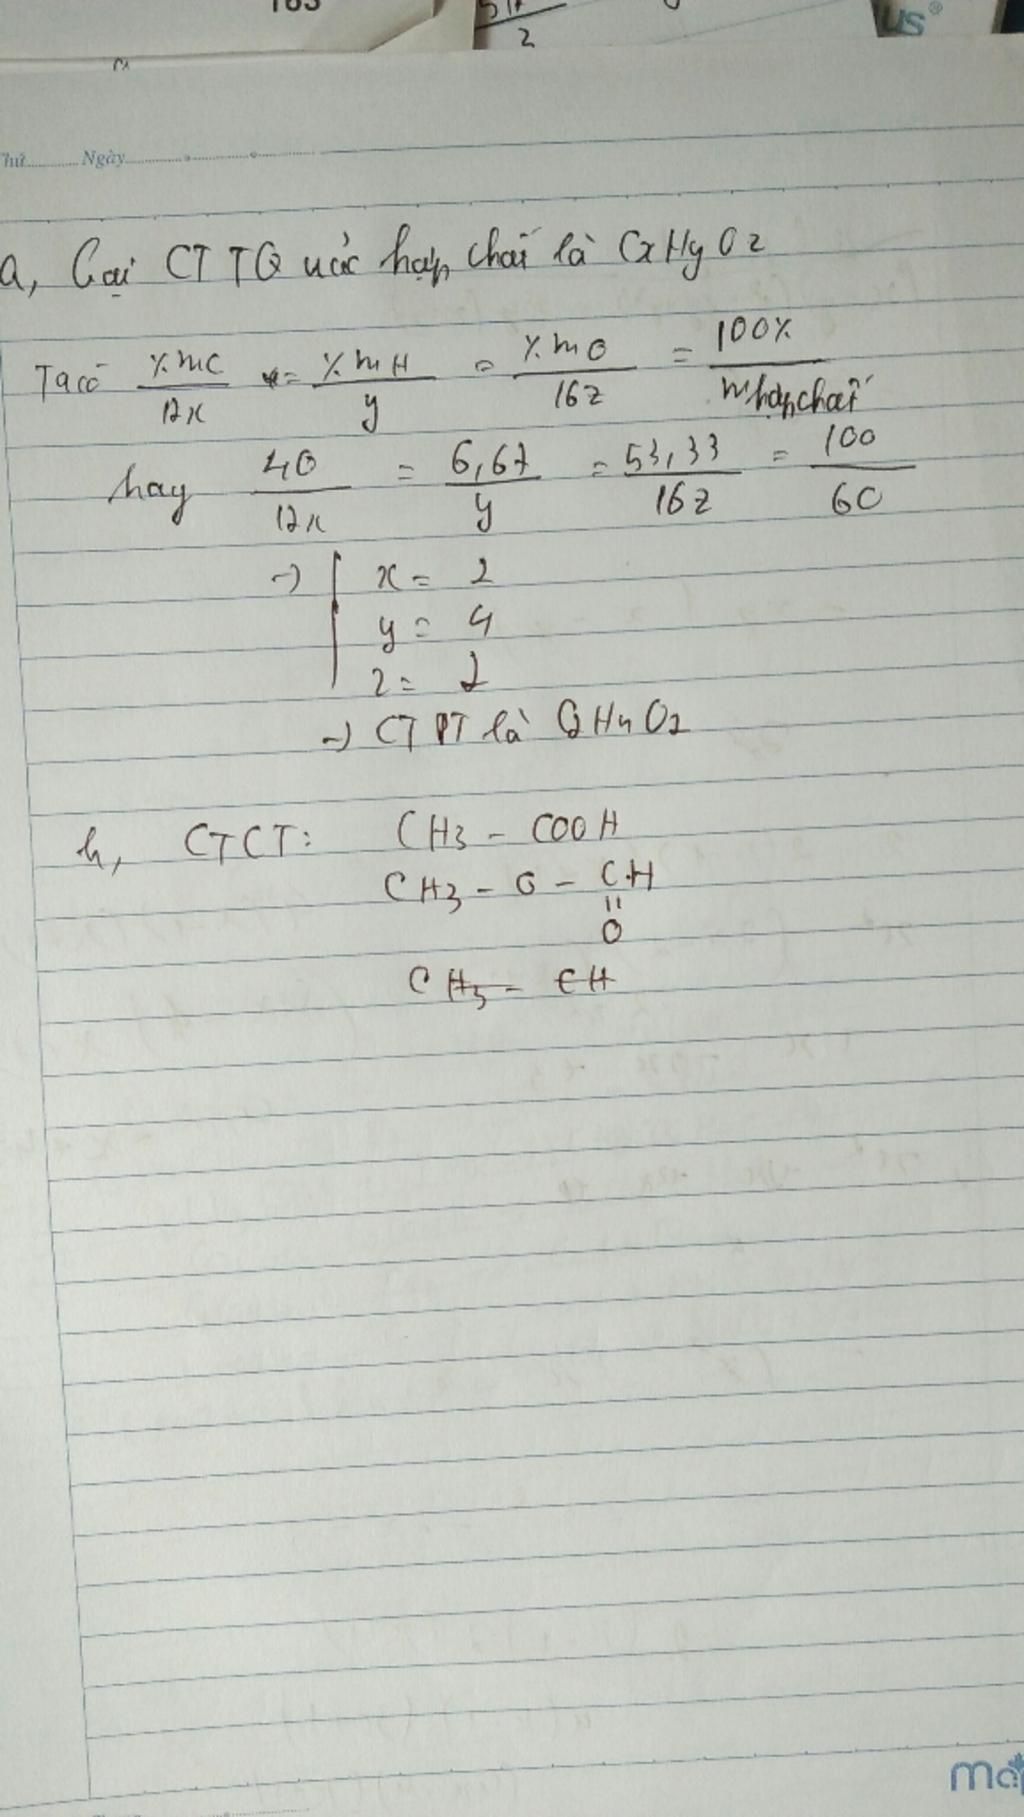 103
2
us®
Thứ Ngày
a, Gọi CTTQ của hợp chất là CxHyOz
Ta có %mC/12x = %mH/y = %mO/16z = 100%/Mhợp chất
hay 40/12x = 6,67/y = 53,33/16z = 100/60
→ x = 2
y = 4
z = 2
→ CTPT là C2H4O2
b, CTCT: CH3 - COOH
CH3 - O - CH
=
O
CH3 - CH